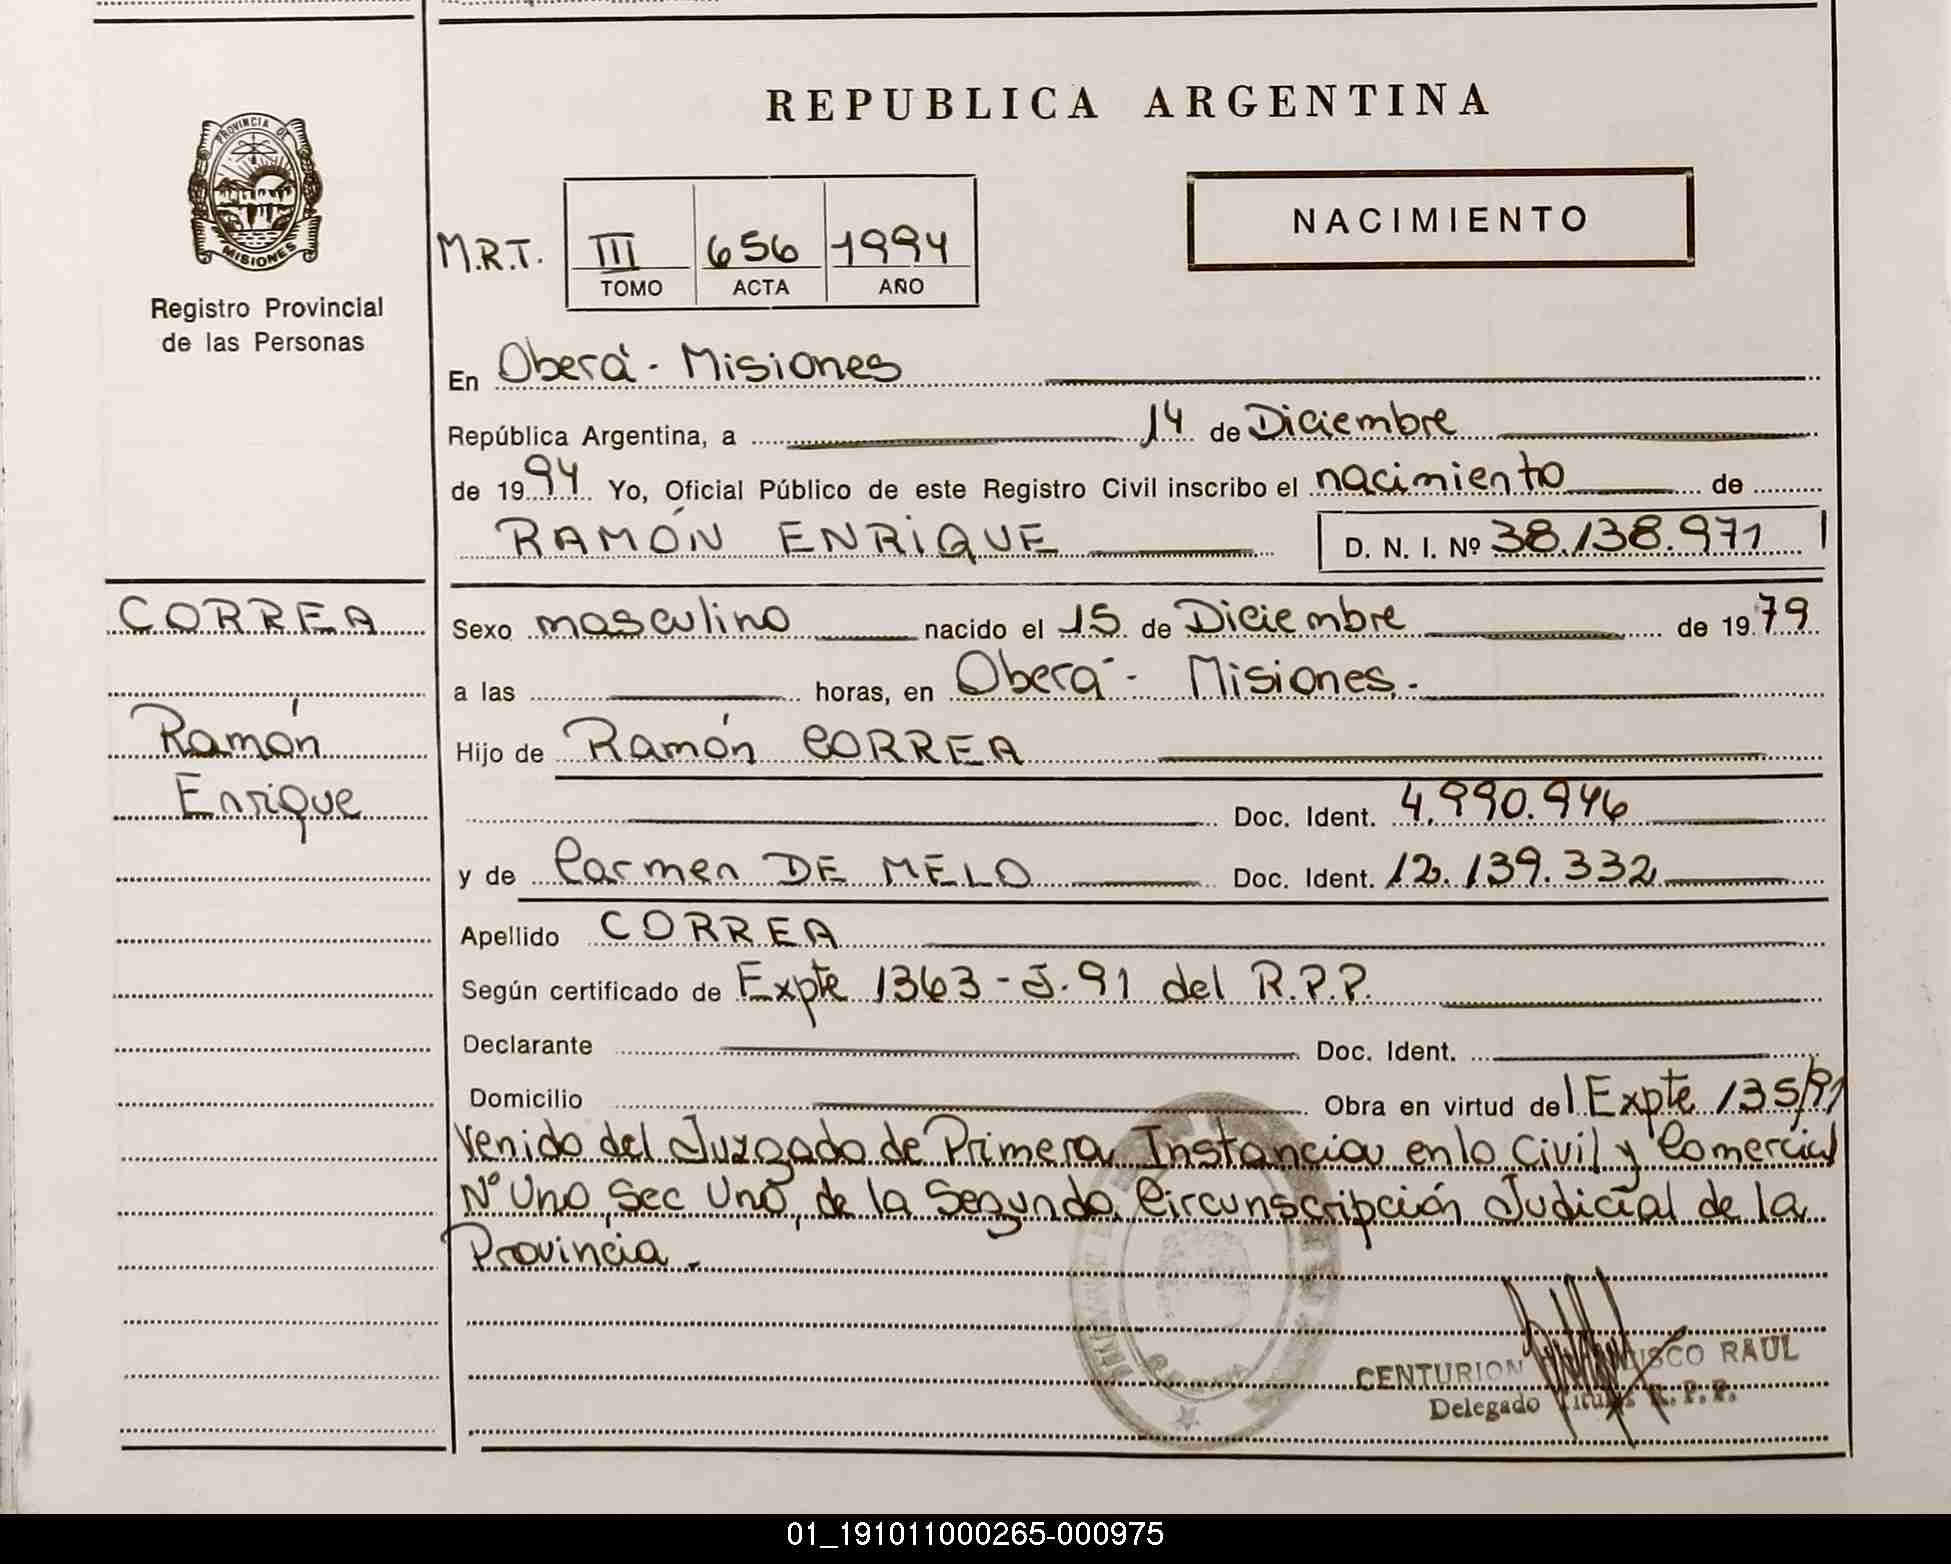 REPUBLICA ARGENTINA
PROVINCIA DE
MISIONES
Registro Provincial
de las Personas
M.R.T.
III 656 1994
TOMO ACTA AÑO
NACIMIENTO
En Oberá - Misiones
República Argentina, a 14 de Diciembre
de 1994 Yo, Oficial Público de este Registro Civil inscribo el nacimiento de
RAMÓN ENRIQUE D. N. I. Nº 38.138.971
CORREA
Ramón
Enrique
Sexo masculino nacido el 15 de Diciembre de 1979
a las horas, en Oberá - Misiones.-
Hijo de Ramón CORREA
Doc. Ident. 4.990.946
y de Carmen DE MELO Doc. Ident. 12.139.332
Apellido CORREA
Según certificado de Expte 1363-J.91 del R.P.P.
Declarante Doc. Ident.
Domicilio Obra en virtud del Expte 135/91
venido del Juzgado de Primera Instancia en lo Civil y Comercial
Nº Uno, Sec Uno, de la Segunda Circunscripción Judicial de la
Provincia.-
CENTURION RAUL
Delegado Titular R.P.P.
01_191011000265-000975